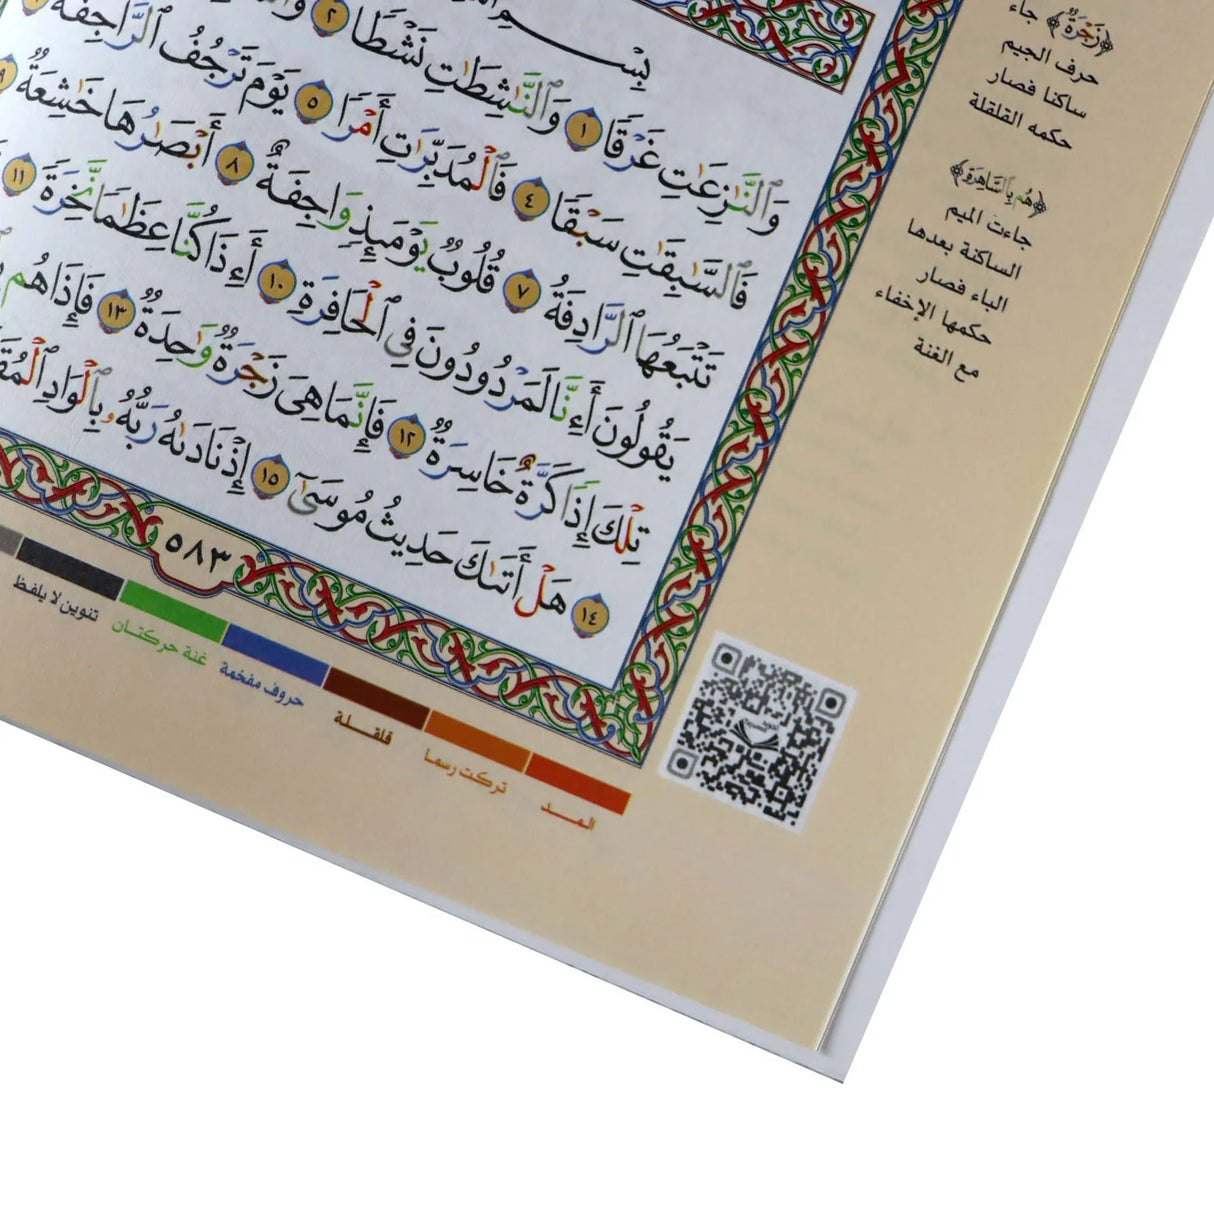 بِسْمِ
وَٱلنَّٰزِعَٰتِ غَرْقًا ١ وَٱلنَّٰشِطَٰتِ نَشْطًا ٢
فَٱلسَّٰبِقَٰتِ سَبْقًا ٤ فَٱلْمُدَبِّرَٰتِ أَمْرًا ٥ يَوْمَ تَرْجُفُ ٱلرَّاجِفَةُ
تَتْبَعُهَا ٱلرَّادِفَةُ ٧ قُلُوبٌ يَوْمَئِذٍ وَاجِفَةٌ ٨ أَبْصَٰرُهَا خَٰشِعَةٌ ٩
يَقُولُونَ أَءِنَّا لَمَرْدُودُونَ فِى ٱلْحَافِرَةِ ١٠ أَءِذَا كُنَّا عِظَٰمًا نَّخِرَةً ١١
تِلْكَ إِذًا كَرَّةٌ خَاسِرَةٌ ١٢ فَإِنَّمَا هِىَ زَجْرَةٌ وَٰحِدَةٌ ١٣ فَإِذَا هُم
١٤ هَلْ أَتَىٰكَ حَدِيثُ مُوسَىٰٓ ١٥ إِذْ نَادَىٰهُ رَبُّهُۥ بِٱلْوَادِ
٥٨٣
﴿زَجْرَةٌ﴾ جاء
حرف الجيم
ساكنا فصار
حكمه القلقلة
﴿هُم بِٱلسَّاهِرَةِ﴾
جاءت الميم
الساكنة بعدها
الباء فصار
حكمها الإخفاء
مع الغنة
المــد
تركت رسما
قلقـلة
حروف مفخمة
غنة حركتـان
تنوين لا يلفـظ